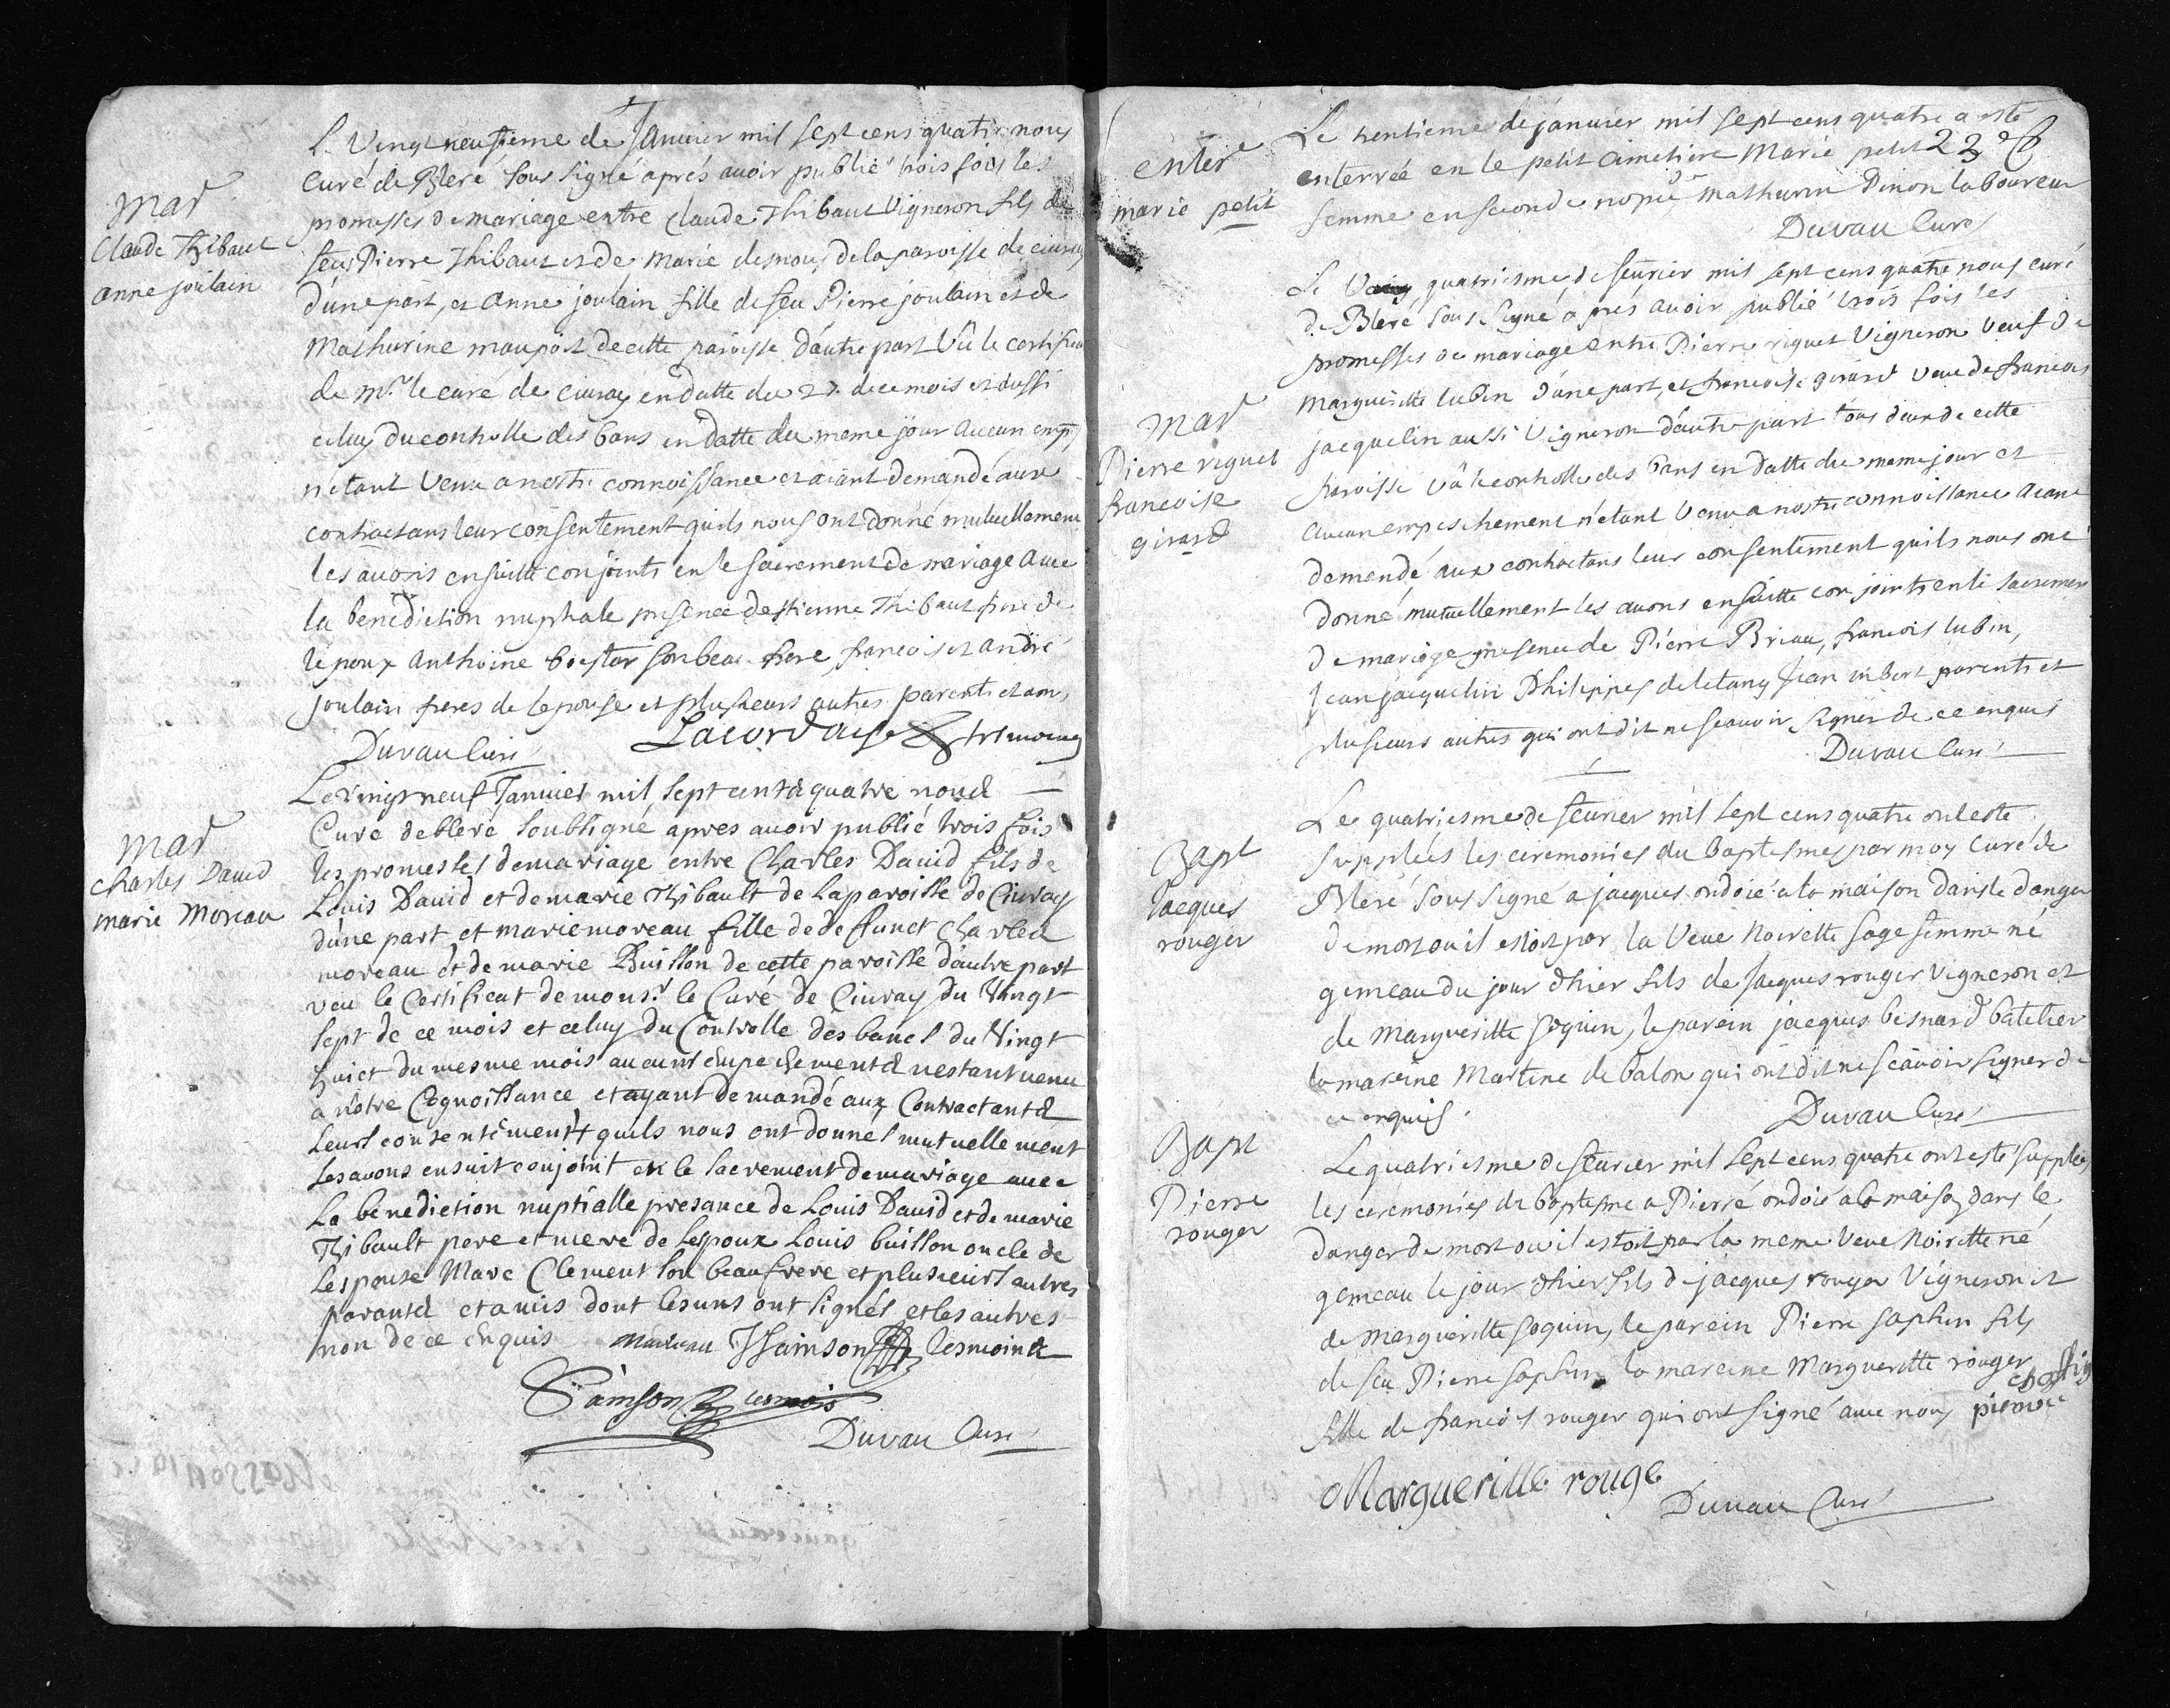 mar
Claude Thibaut
anne joulain
Le Vingt neufieme de Janvier mil sept cens quatre nous
curé de Bleré sous signé aprés avoir publié trois fois les
promesses de mariage entre Claude Thibaut Vigneron fils de
feu Pierre Thibaut et de Marie desnous de la paroisse de civray
d'une part, et anne joulain fille de feu Pierre joulain et de
Mathurine maupoit de cette paroisse d'autre part Vû le certificat
de Mr. le curé de civray en datte du 27. de ce mois et aussi
celuy du controlle des bans en datte du meme jour aucun emp.
n'etant Venu a nostre connoissance et aiant demandé aux
contractans leur consentement quils nous ont donné mutuellement
les avons ensuitte conjoints en le sacrement de mariage avec
la benediction nuptiale presence destienne Thibaut frere de
lepoux Anthoine son beau frere, francois et andré
joulain freres de lepouse et plusieurs autres parents et amis
Duvau Curé
mar
Charles David
marie Moreau
Le vingt neuf Janvier mil sept cents quatre nous
Curé de bleré soubsigné apres avoir publié trois fois
les promesses de mariage entre Charles David fils de
Louis David et de marie Thibault de la paroisse de Civray
d'une part et marie moreau fille de deffunct Charles
moreau et de marie Buisson de cette paroisse d'autre part
veu le Certificat de mons.r le Curé de Civray du Vingt
sept de ce mois et celuy du Controlle des bancs du Vingt
huict du mesme mois aucuns empechements nestant venu
a notre Cognoissance et ayant demandé aux Contractants
leurs consentements quils nous ont donnés mutuellement
les avons ensuit conjoint en le sacrement de mariage avec
La benediction nuptialle presance de Louis David et de marie
Thibault pere et mere de lespoux Louis buisson oncle de
Lespouse Marc Clement son beau frere et plusieurs autres
parants et amis dont les uns ont signés et les autres
non de ce Enquis JSamson tesmoint
Samson
Duvau Curé
enterr
marie petit
Le trentieme de janvier mil sept cens quatre a esté
enterrée en le petit cimetiere Marie petit
femme en seconde nopce mathurin Pinon laboureur
Duvau Curé
mar
Pierre riguet
francoise
girard
Le quatriesme de fevrier mil sept cens quatre nous curé
de Bleré sous signé aprés avoir publié trois fois les
promesses de mariage entre Pierre riguet Vigneron Veuf de
Marguerite lubin d'une part, et francoise girard Veuve de francois
jacquelin aussi Vigneron d'autre part tous deux de cette
paroisse vû le controlle des bans en datte du meme jour et
aucun empeschement n'etant Venu a nostre connoissance aiant
demendé aux contractans leur consentement quils nous ont
donné mutuellement les avons ensuitte conjoints en le sacrement
de mariage presence de Pierre Briau, francois lubin,
Jean jacquelin Philippes deletang Jean imbert parents et
plusieurs autres qui ont dit ne scavoir signer de ce enquis
Duvau Curé
Bapt
Jacques
rouger
Le quatriesme de fevrier mil sept cens quatre ont esté
suppléés les ceremonies du baptesme par moy Curé de
Bleré sous signé a jacques ondoié a la maison dans le danger
de mort ou il estoit par la Veuve Noirette sage femme né
gemeau du jour d'hier fils de Jacques rouger vigneron et
de Margueritte soquin, le parein jacques besnard batelier
la mareine Martine de balon qui ont dit ne scavoir signer de
ce enquis.
Duvau Curé
Bapt
Pierre
rouger
Le quatriesme de fevrier mil sept cens quatre ont esté suppléés
les ceremonies du baptesme a Pierre ondoié a la maison dans le
danger de mort ou il estoit par la meme Veuve Noirette né
gemeau le jour d'hier fils de jacques rouger Vigneron et
de Margueritte soquin, le parein Pierre fils
de feu Pierre la mareine Margueritte rouger
fille de francois rouger qui ont signé avec nous pierre
Margueritte rouge
Duvau Curé